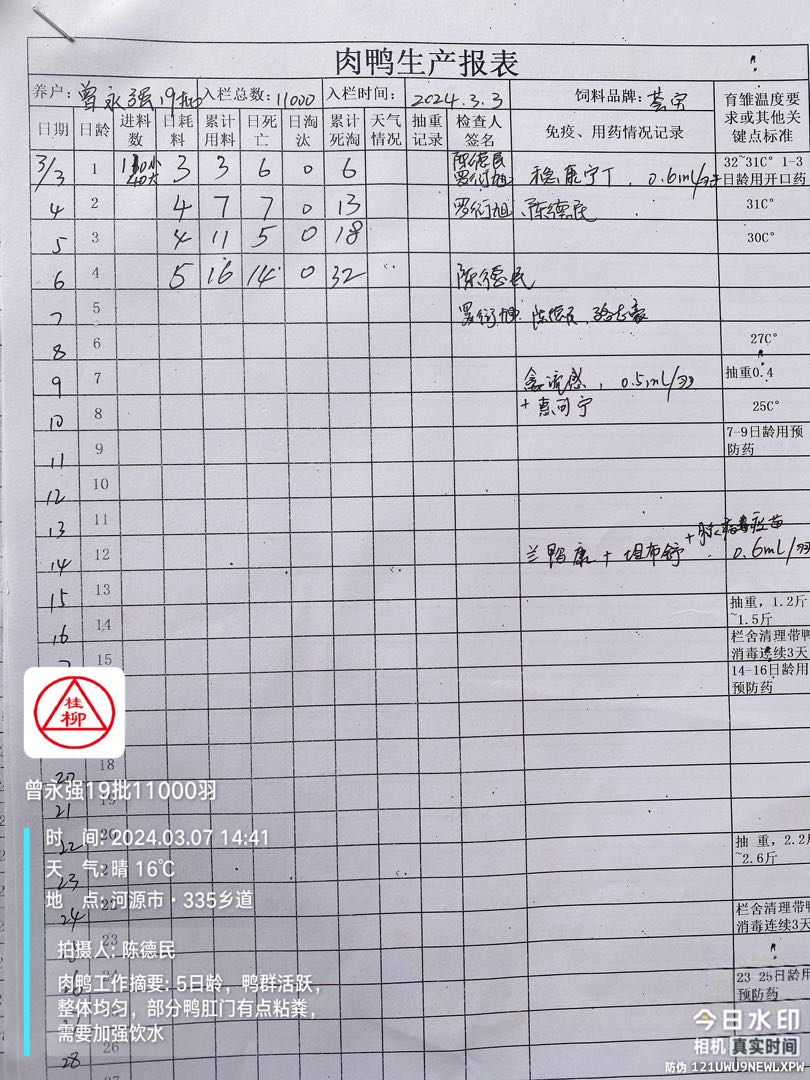 肉鸭生产报表
养户: 曾永强19批 入栏总数: 11000 入栏时间: 2024.3.3 饲料品牌: 育雏温度要求或其他关键点标准
日期 日龄 进料数 日耗料 累计用料 日死亡 日淘汰 累计死淘 天气情况 抽重记录 检查人签名 免疫、用药情况记录
3/3 1 3 3 6 0 6 陈德民 罗衍旭 穗康宁丁, 0.6ml/羽 32~31C° 1-3日龄用开口药
4 2 4 7 7 0 13 罗衍旭、陈德民 31C°
5 3 4 11 5 0 18 30C°
6 4 5 16 14 0 32 陈德民
7 5 罗衍旭 陈德民
8 6 27C°
9 7 鑫流感, 0.5ml/羽 抽重0.4
10 8 + 惠可宁 25C°
11 9 7-9日龄用预防药
12 10
13 11
14 12 兰鸭康 + 坦布舒 0.6ml/羽
15 13
16 14 抽重, 1.2斤~1.5斤
15 栏舍清理带鸭消毒连续3天
14-16日龄用预防药
桂柳
20 18
曾永强19批11000羽
21 19
时 间: 2024.03.07 14:41
22 20 抽 重, 2.2斤~2.6斤
天 气: 晴 16℃
23 21
地 点: 河源市·335乡道
24 22 栏舍清理带鸭消毒连续3天
23
拍摄人: 陈德民
24 23-25日龄用预防药
肉鸭工作摘要: 5日龄，鸭群活跃，
整体均匀，部分鸭肛门有点粘粪，
需要加强饮水
28 26
27
今日水印
相机 真实时间
防伪 121UWU9NEWLXPW